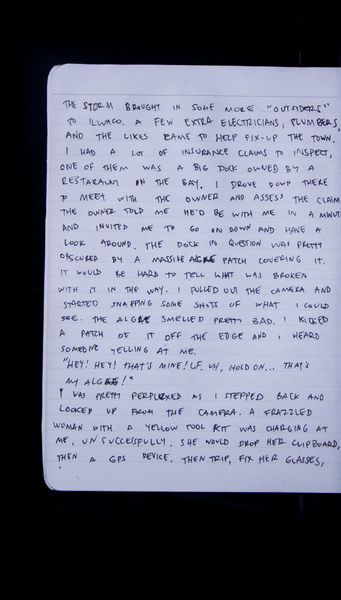 THE STORM BROUGHT IN SOME MORE "OUTSIDERS"
TO ILWACO. A FEW EXTRA ELECTRICIANS, PLUMBERS,
AND THE LIKES CAME TO HELP FIX-UP THE TOWN.
I HAD A LOT OF INSURANCE CLAIMS TO INSPECT,
ONE OF THEM WAS A BIG DOCK OWNED BY A
RESTARAUNT ON THE BAY. I DROVE DOWN THERE
TO MEET WITH THE OWNER AND ASSESS THE CLAIM
THE OWNER TOLD ME HE'D BE WITH ME IN A MINUTE
AND INVITED ME TO GO ON DOWN AND HAVE A
LOOK AROUND. THE DOCK IN QUESTION WAS PRETTY
OBSCURED BY A MASSIVE ALGAE PATCH COVERING IT.
IT WOULD BE HARD TO TELL WHAT WAS BROKEN
WITH IT IN THE WAY. I PULLED OUT THE CAMERA AND
STARTED SNAPPING SOME SHOTS OF WHAT I COULD
SEE. THE ALGAE SMELLED PRETTY BAD. I KICKED
A PATCH OF IT OFF THE EDGE AND I HEARD
SOMEONE YELLING AT ME.
"HEY! HEY! THAT'S MINE! UH, HOLD ON... THAT'S
MY ALGAE!"
I WAS PRETTY PERPLEXED AS I STEPPED BACK AND
LOOKED UP FROM THE CAMERA. A FRAZZLED
WOMAN WITH A YELLOW TOOL KIT WAS CHARGING AT
ME, UNSUCCESSFULLY. SHE WOULD DROP HER CLIPBOARD,
THEN A GPS DEVICE. THEN TRIP, FIX HER GLASSES,